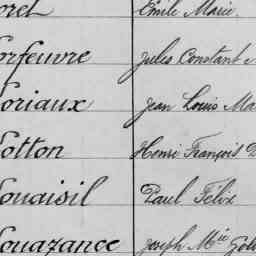 orel Émile Marie
orfeuvre Jules Constant
oriaux Jean Louis Ma
otton Henri François D
ouaisil Paul Félix
ouazance Joseph Mie Gol